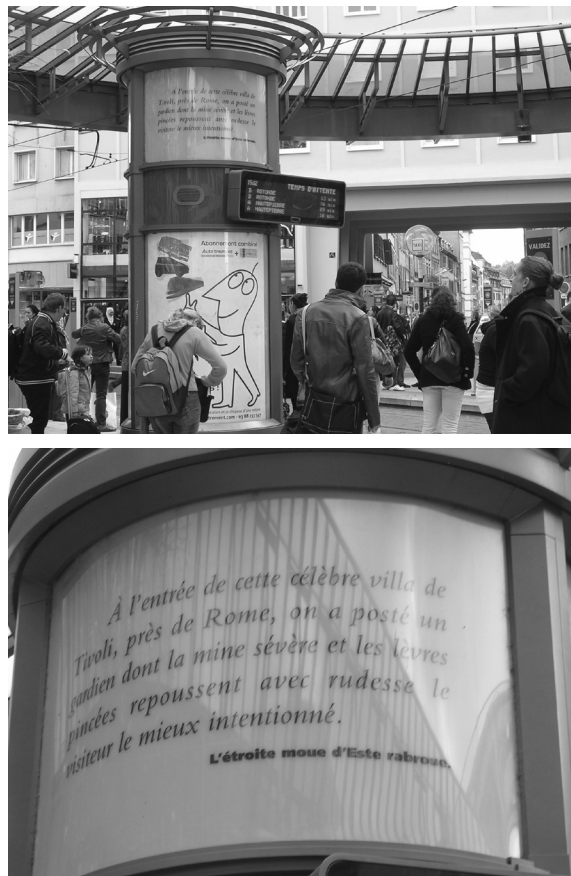 À l'entrée de cette célèbre villa de
Tivoli, près de Rome, on a posté un
gardien dont la mine sévère et les lèvres
pincées repoussent avec rudesse le
visiteur le mieux intentionné.
TEMPS D'ATTENTE
ROTONDE
ROTONDE
HAUTEPIERRE
HAUTEPIERRE
Abonnement combiné
VALIDEZ
À l'entrée de cette célèbre villa de
Tivoli, près de Rome, on a posté un
gardien dont la mine sévère et les lèvres
pincées repoussent avec rudesse le
visiteur le mieux intentionné.
L'étroite moue d'Este rabroue.